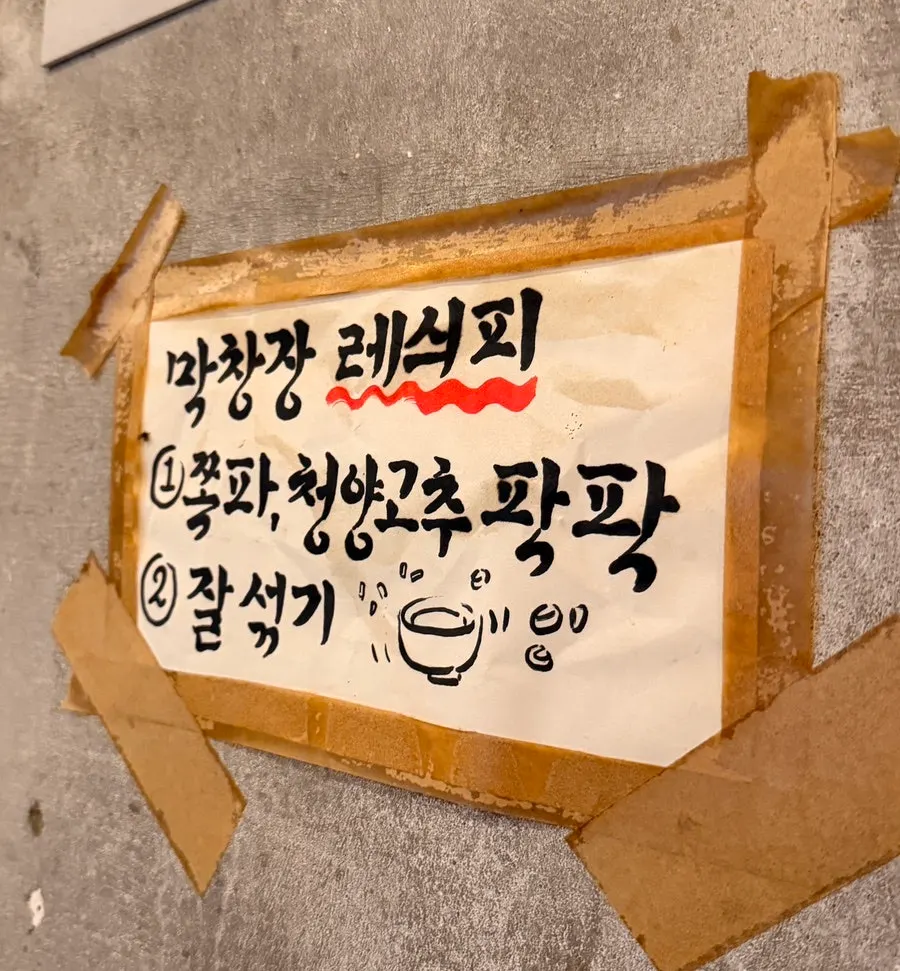 막창장 레싀피
① 쪽파, 청양고추 팍팍
② 잘 섞기